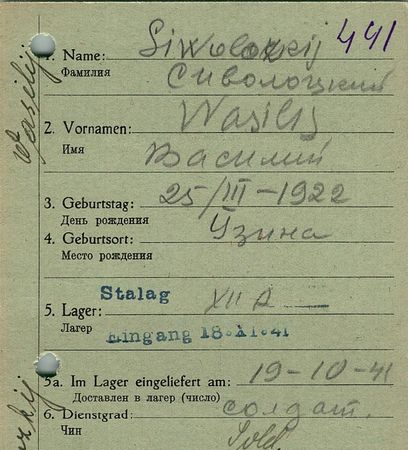 1. Name: Siwolozkij 441
Фамилия Сиволоцкий
2. Vornamen: Wasilij
Имя Василий
3. Geburtstag: 25/III-1922
День рождения
4. Geburtsort: Узина
Место рождения
Stalag
5. Lager: XII A
Лагер Eingang 18.XI.41
5a. Im Lager eingeliefert am: 19-10-41
Доставлен в лагер (число)
6. Dienstgrad: солдат.
Чин Sold.
Wasilij